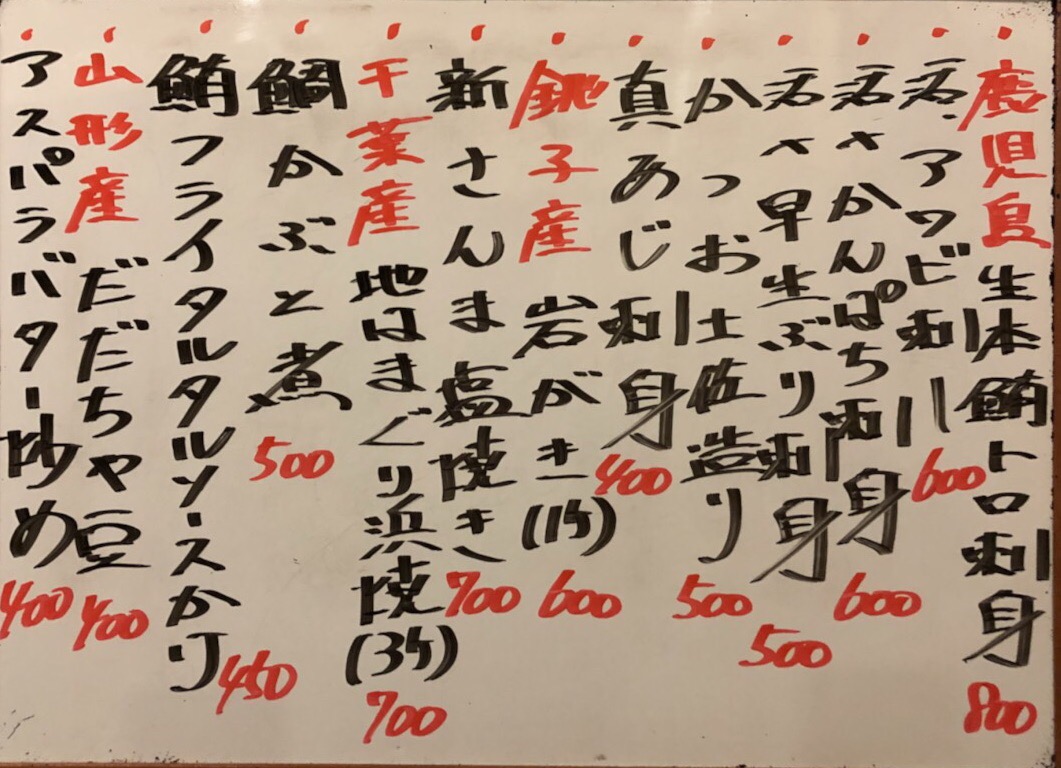 鹿児島生本鮪トロ刺身 800
アワビ刺し 600
かんぱち刺身 600
早生ぶり刺身 500
かつお土佐造り 500
真あじ刺身 400
銚子産岩がき(1ケ) 600
新さんま塩焼き 700
千葉産地はまぐり浜焼(3ケ) 700
鯛かぶと煮 500
鮪フライタルタルソースかり 450
山形産だだちゃ豆 400
アスパラバター炒め 400